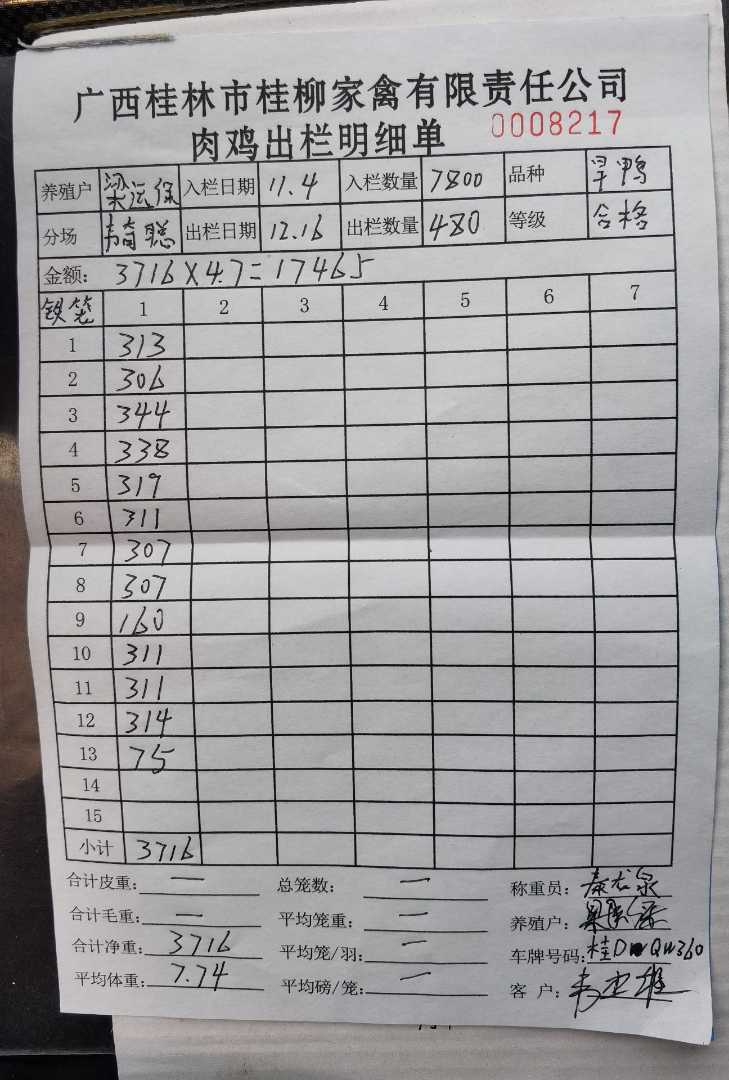 广西桂林市桂柳家禽有限责任公司
肉鸡出栏明细单 0008217
养殖户 梁沅保 入栏日期 11.4 入栏数量 7800 品种 旱鸭
分场 聪 出栏日期 12.16 出栏数量 480 等级 合格
金额: 3716×4.7=17465
铁笼 1 2 3 4 5 6 7
1 313
2 306
3 344
4 338
5 319
6 311
7 307
8 307
9 160
10 311
11 311
12 314
13 75
14
15
小计 3716
合计皮重: — 总笼数: — 称重员: 秦龙泉
合计毛重: — 平均笼重: — 养殖户:
合计净重: 3716 平均笼/羽: — 车牌号码: 桂D QW360
平均体重: 7.74 平均磅/笼: — 客户: